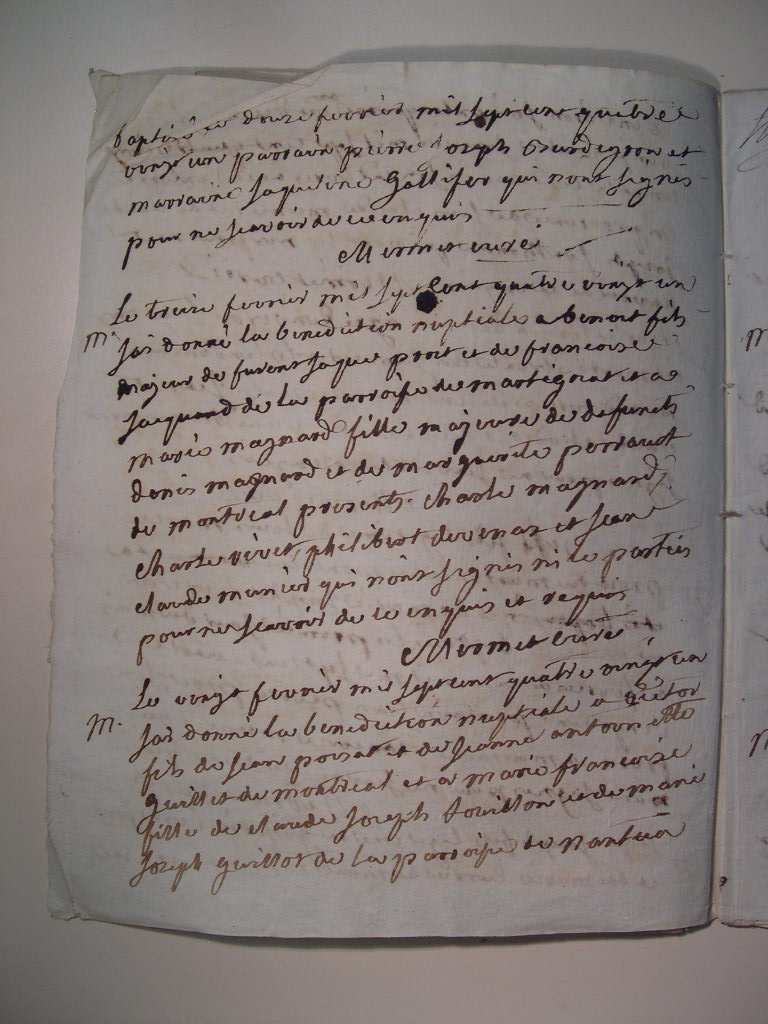 baptisé ce douze fevrier mil sept cent quatre
vingt un parrain pierre joseph et
marraine jaqueline Gallifer qui n'ont signés
pour ne scavoir de ce enquis
Mermet curé
Le treize fevrier mil sept cent quatre vingt un
m. jai donné la benediction nuptiale a benoit fils
majeur de furent jaque proit et de francoise
jacquand de la parroise de martignat et a
marie magnard fille majeure de defuncts
denis magnard et de marguerite perraud
de montreal presents. charle magnard
charle vivet, philibert devenas et jean
claude munier qui n'ont signés ni le parties
pour ne scavoir de ce enquis et requis
Mermet curé
Le vingt fevrier mil sept cent quatre vingt un
m. jai donné la benediction nuptiale a victor
fils de jean poisat et de jeanne antoinette
guillet de montreal et a marie francoise
fille de claude joseph touillon et de marie
joseph guillot de la parroise de nantua